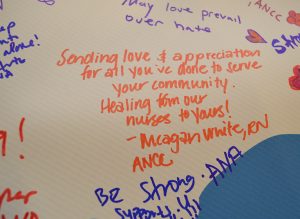 May love prevail
over hate
ANCC
Sending love & appreciation
for all you've done to serve
your community.
Healing from our
nurses to yours!
- Meagan White, RN
ANCC
Be Strong. ANA
Supports